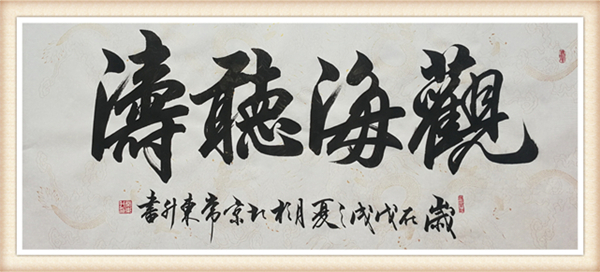 觀海聽濤
歲在戊戌之夏月於北京常東升書